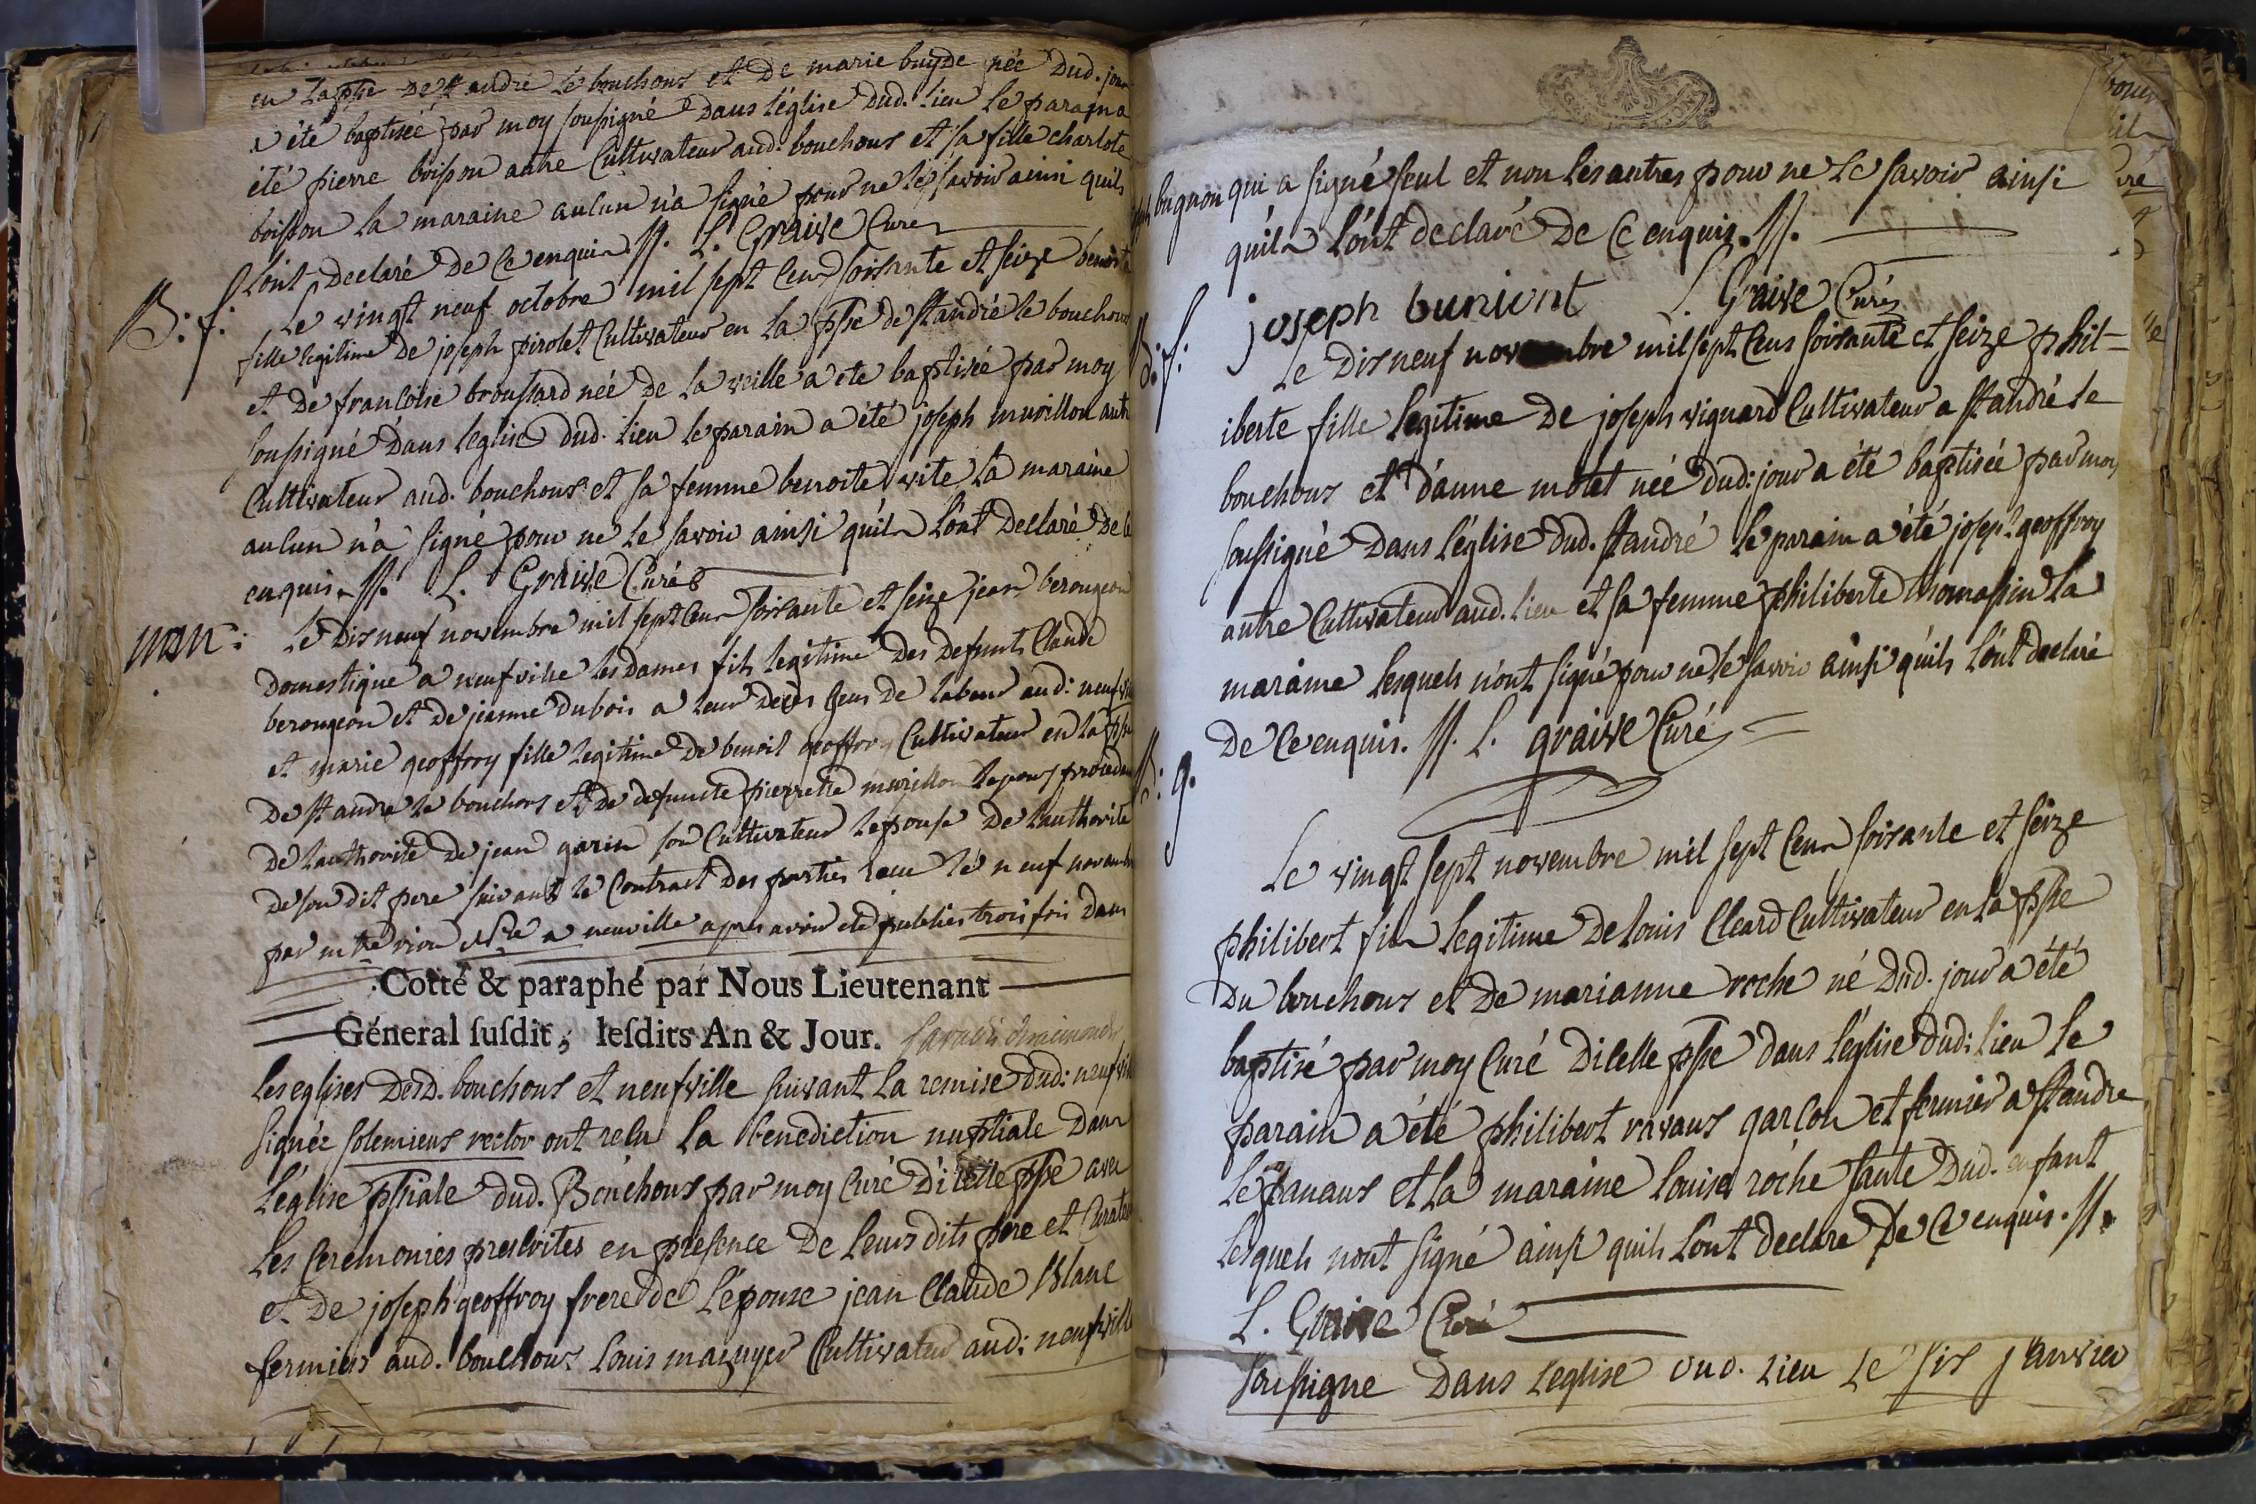 en la psse de st andré le bouchous et de marie buyde née dud. jour
a été baptisée par moy soussigné dans l'église dud. lieu le parain a
été pierre boisson autre Cultivateur aud. bouchous et sa fille charlote
boisson la maraine aucun n'a signé pour ne le savoir ainsi quils
l'ont declaré de ce enquis ./. L. Graive Curé
B: f: Le vingt neuf octobre mil sept Cens soisante et seize benoite
fille legitime de joseph pirolet Cultivateur en la psse de st andré le bouchous
et de francoise broussard née de la veille a ete baptisée par moy
soussigné dans l'eglise dud. lieu le parain a été joseph muvillon autre
Cultivateur aud. bouchous et sa femme benoite vite la maraine
aucun n'a signé pour ne le savoir ainsi quils l'ont declaré de ce
enquis ./. L. Graive Curé
mar: Le dis neuf novembre mil sept Cens soisante et seize jean berougeon
domestique a neufville les dames fils legitime des defunts Claude
berougeon et de jeanne dubois a leur deces gens de labeur aud: neufville
et marie geoffroy fille legitime de benoit geoffroy Cultivateur en la psse
de st andre le bouchous et de defuncte pierrette muvillon lepoux procedant
de lauthorité de jean garin son Cultivateur lepouse de lauthorité
de son dit pere suivant le Contract des parties recu le neuf novembre
par mtre vion nre a neuville apres avoir eté publies trois fois dans
Cotté & paraphé par Nous Lieutenant
Géneral susdit, lesdits An & Jour.
les eglises desd. bouchous et neufville suivant la remise dud: neufville
signée solemieus rector ont recu la benediction nuptiale dans
l'église pssiale dud. Bouchous par moy Curé d'icelle psse avec
les ceremonies prescrites en presence de leurs dits pere et Curateur
et de joseph geoffroy frere de l'epouse jean Claude blanc
fermier aud. bouchous louis mazuyer Cultivateur aud: neufville
bugnon qui a signé seul et non les autres pour ne le savoir ainsi
quils l'ont declaré de ce enquis ./.
joseph buniont L. Graive Curé
B: f: Le dis neuf novembre mil sept Cens soisante et seize phil-
iberte fille legitime de joseph vignard Cultivateur a st andré le
bouchous et d'anne motet née dud: jour a été baptisée par moy
soussigné dans l'église dud. st andré le parain a été joseph geoffroy
autre Cultivateur aud. lieu et sa femme philiberte thomassin la
maraine lesquels n'ont signé pour ne le savoir ainsi quils l'ont declaré
de ce enquis ./. L. graive Curé
B: g.
Le vingt sept novembre mil sept Cens soisante et seize
philibert fils legitime de louis Cleard Cultivateur en la psse
du bouchous et de marianne roche né dud. jour a été
baptisé par moy Curé dicelle psse dans l'église dud: lieu le
parain a été philibert ravaus garcon et fermier a st andre
le panaus et la maraine louise roche tante dud. enfant
lesquels nont signé ainsi quils l'ont declare de ce enquis ./.
L. Graive Curé
soussigne dans leglise dud. lieu le sis janvier